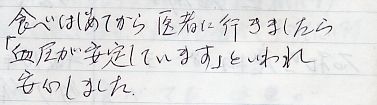 食べはじめてから医者に行きましたら
「血圧が安定しています」といわれ
安心しました.